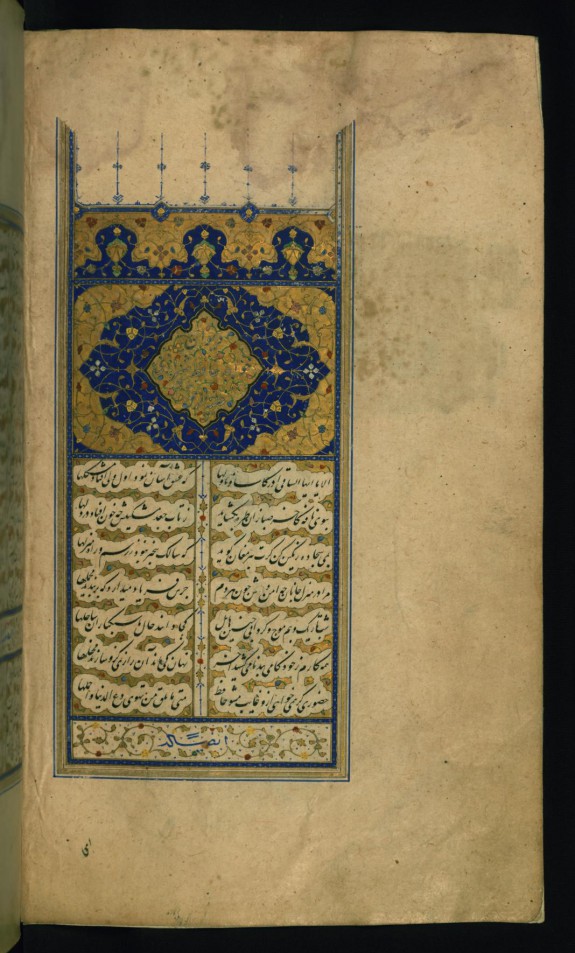 الا یا ایها الساقی ادر کاسا و ناولها که عشق آسان نمود اول ولی افتاد مشکلها
ببوی نافه کاخر صبا زان طره بگشاید ز تاب جعد مشکینش چه خون افتاد در دلها
بمی سجاده رنگین کن گرت پیر مغان گوید که سالک بیخبر نبود ز رسم و راه منزلها
مرا در منزل جانان چه امن عیش چون هر دم جرس فریاد میدارد که بربندید محملها
شب تاریک و بیم موج و گردابی چنین هایل کجا دانند حال ما سبکباران ساحلها
همه کارم ز خود کامی ببدنامی کشید آخر نهان کی ماند آن رازی کزو سازند محفلها
حضوری گر همی خواهی ازو غایب مشو حافظ متی ما تلق من تهوی دع الدنیا و اهملها
ایضا له